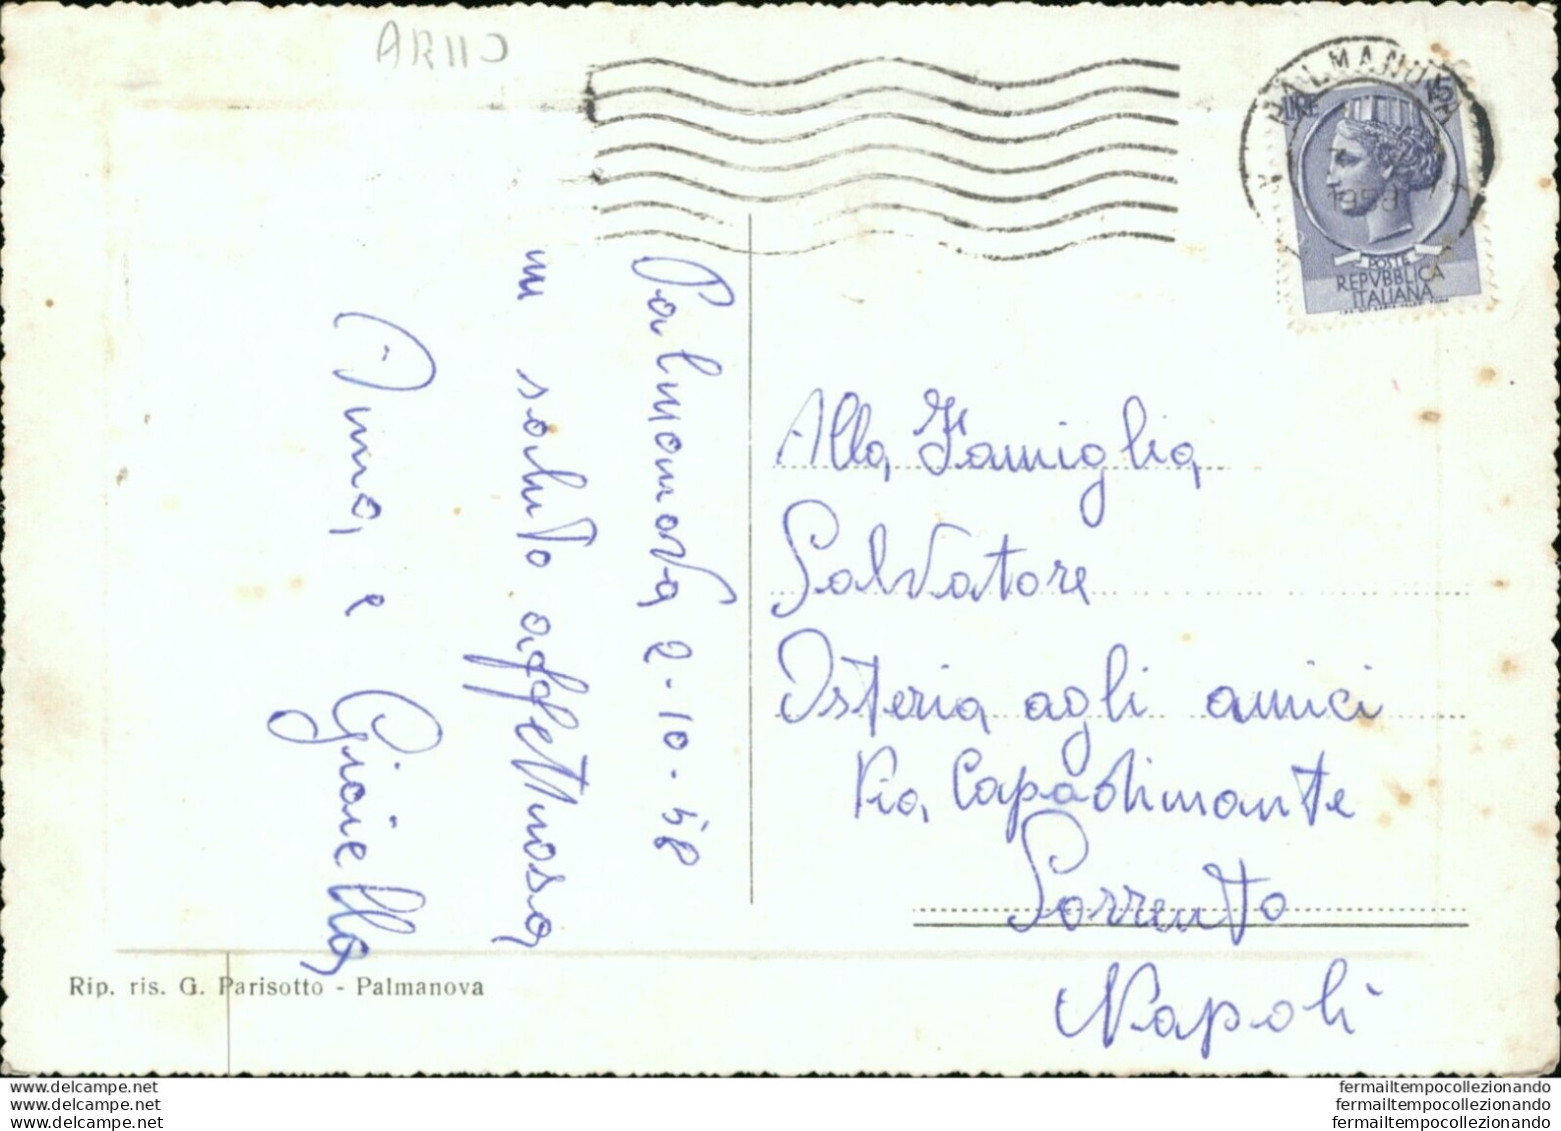 AR110
PALMANOVA
1958
LIRE 15
POSTE
REPVBBLICA
ITALIANA
Palmanova 2-10-58
un saluto affettuoso
Anna e Graziella
Alla Famiglia
Salvatore
Osteria agli amici
Via Capodimonte
Sorrento
Napoli
Rip. ris. G. Parisotto - Palmanova
www.delcampe.net
www.delcampe.net
www.delcampe.net
fermailtempocollezionando
fermailtempocollezionando
fermailtempocollezionando